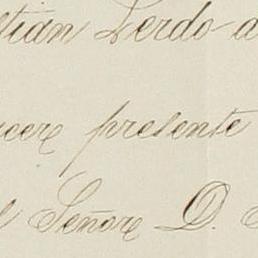 stián Lerdo d
ucere presente
l Señore D. S